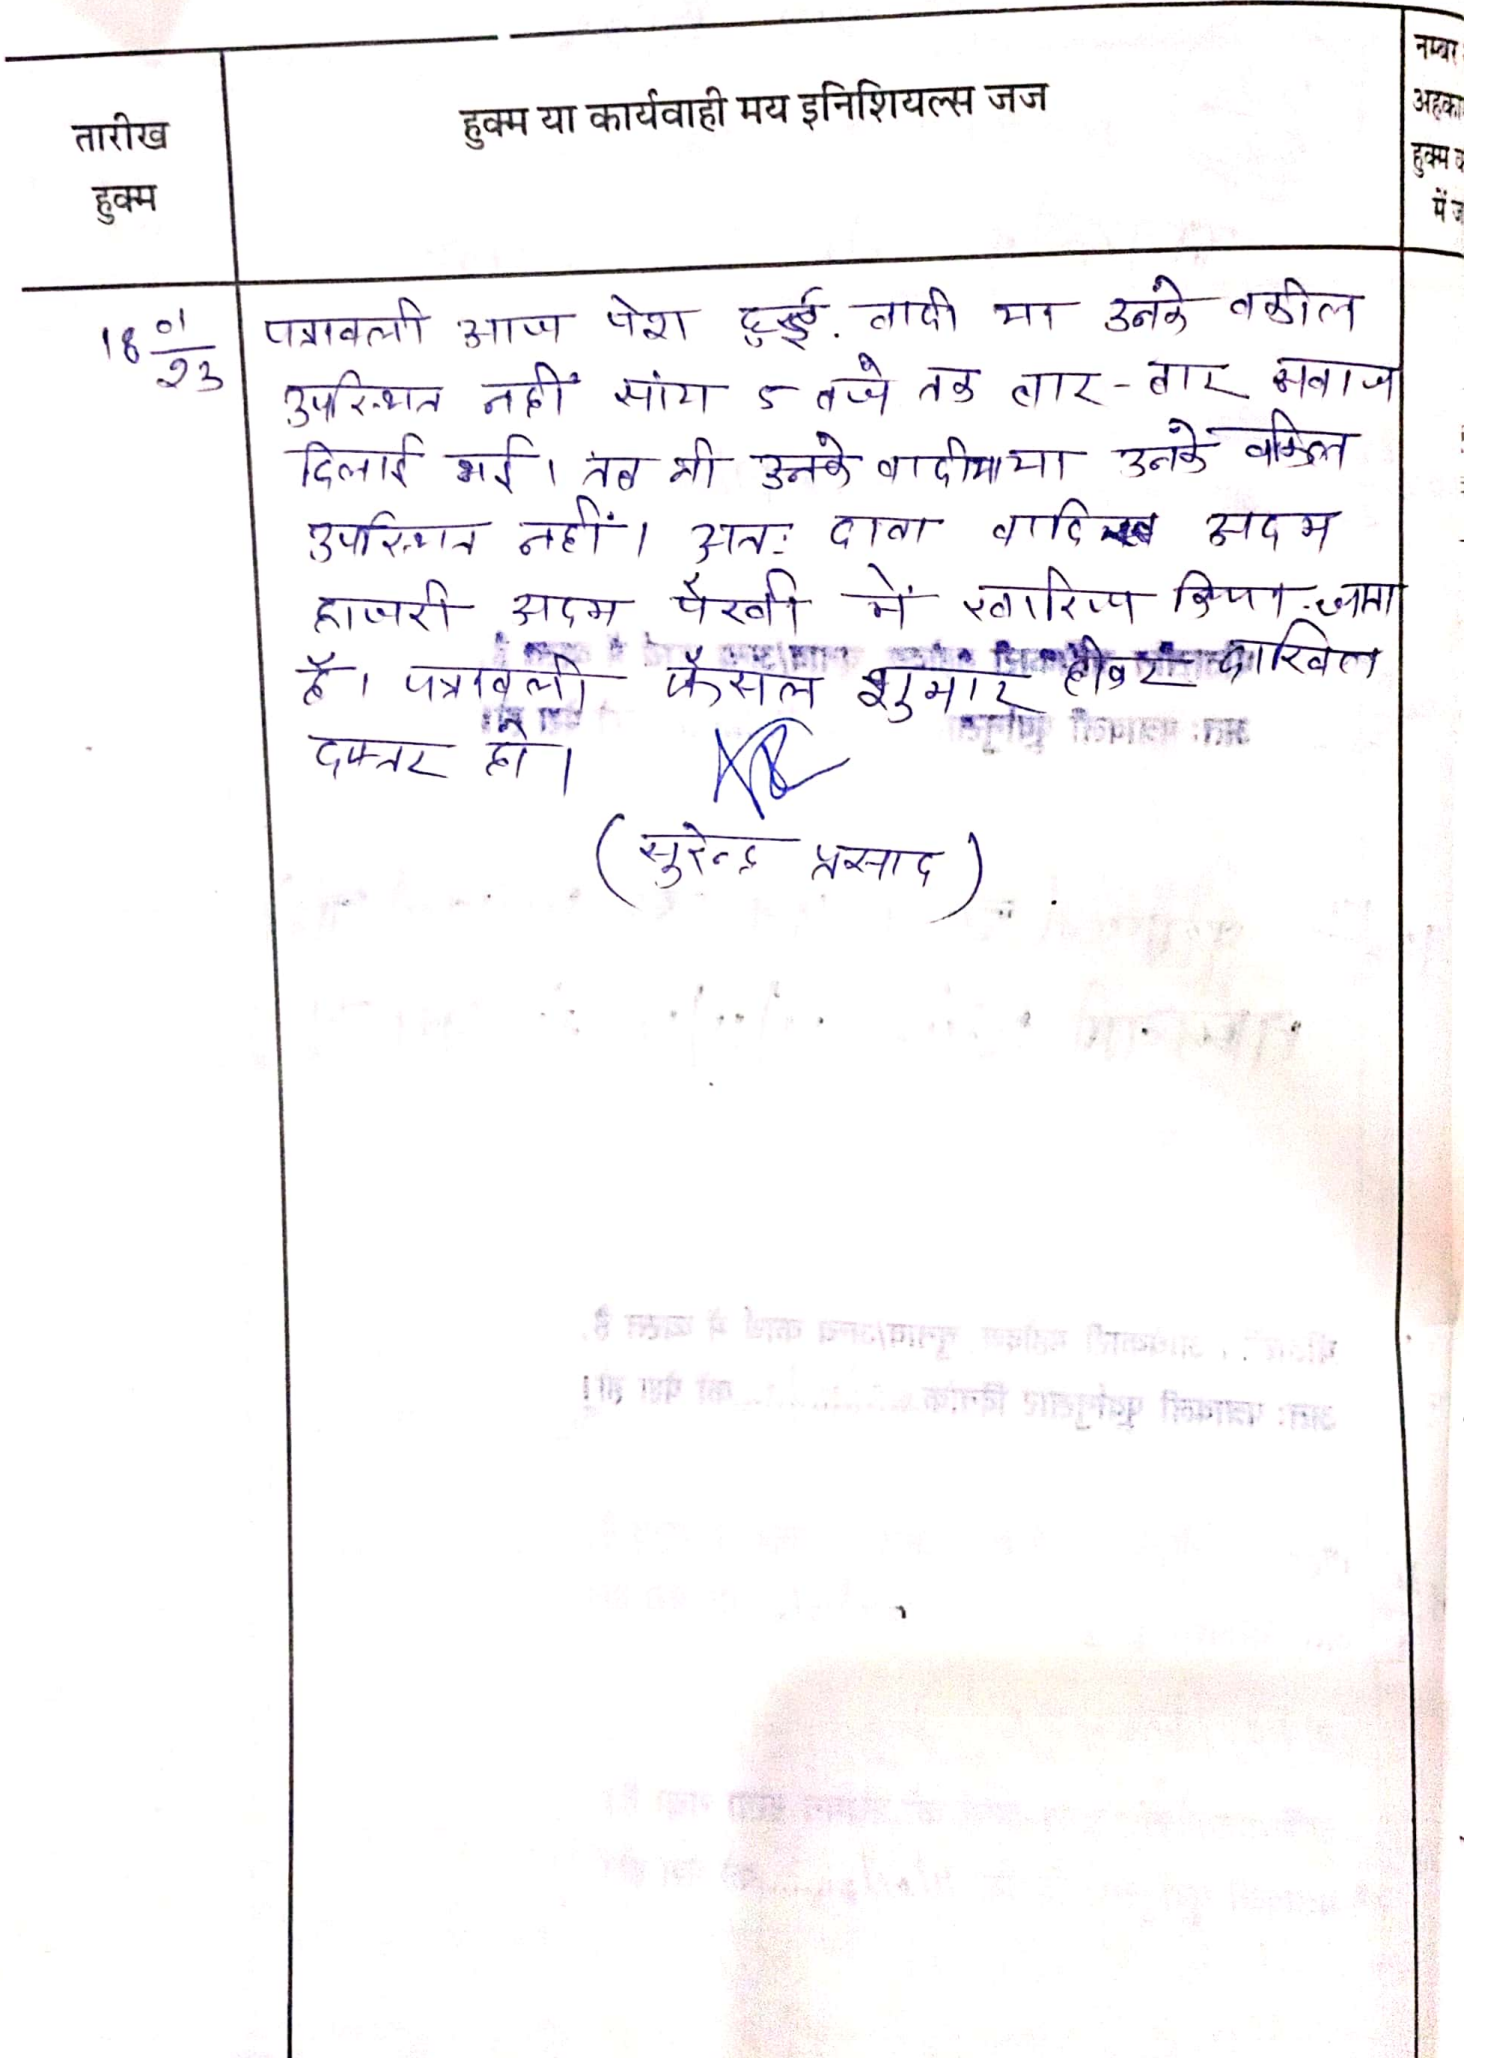 तारीख
हुक्म
हुक्म या कार्यवाही मय इनिशियल्स जज
नम्बर
अहका
हुक्म
में ज
18 01/23
पत्रावली आज पेश हुई. वादी या उनके वकील
उपस्थित नहीं सांय 5 बजे तक बार-बार अवाज
दिलाई गई। तब भी उनके वादी या उनके वकिल
उपस्थित नहीं। अतः दावा वादि अदम
हाजरी अदम पैरवी में खारिज किया जाता
है। पत्रावली फैसल शुमार होकर दाखिल
दफ्तर हो।
(सुरेन्द्र प्रसाद)